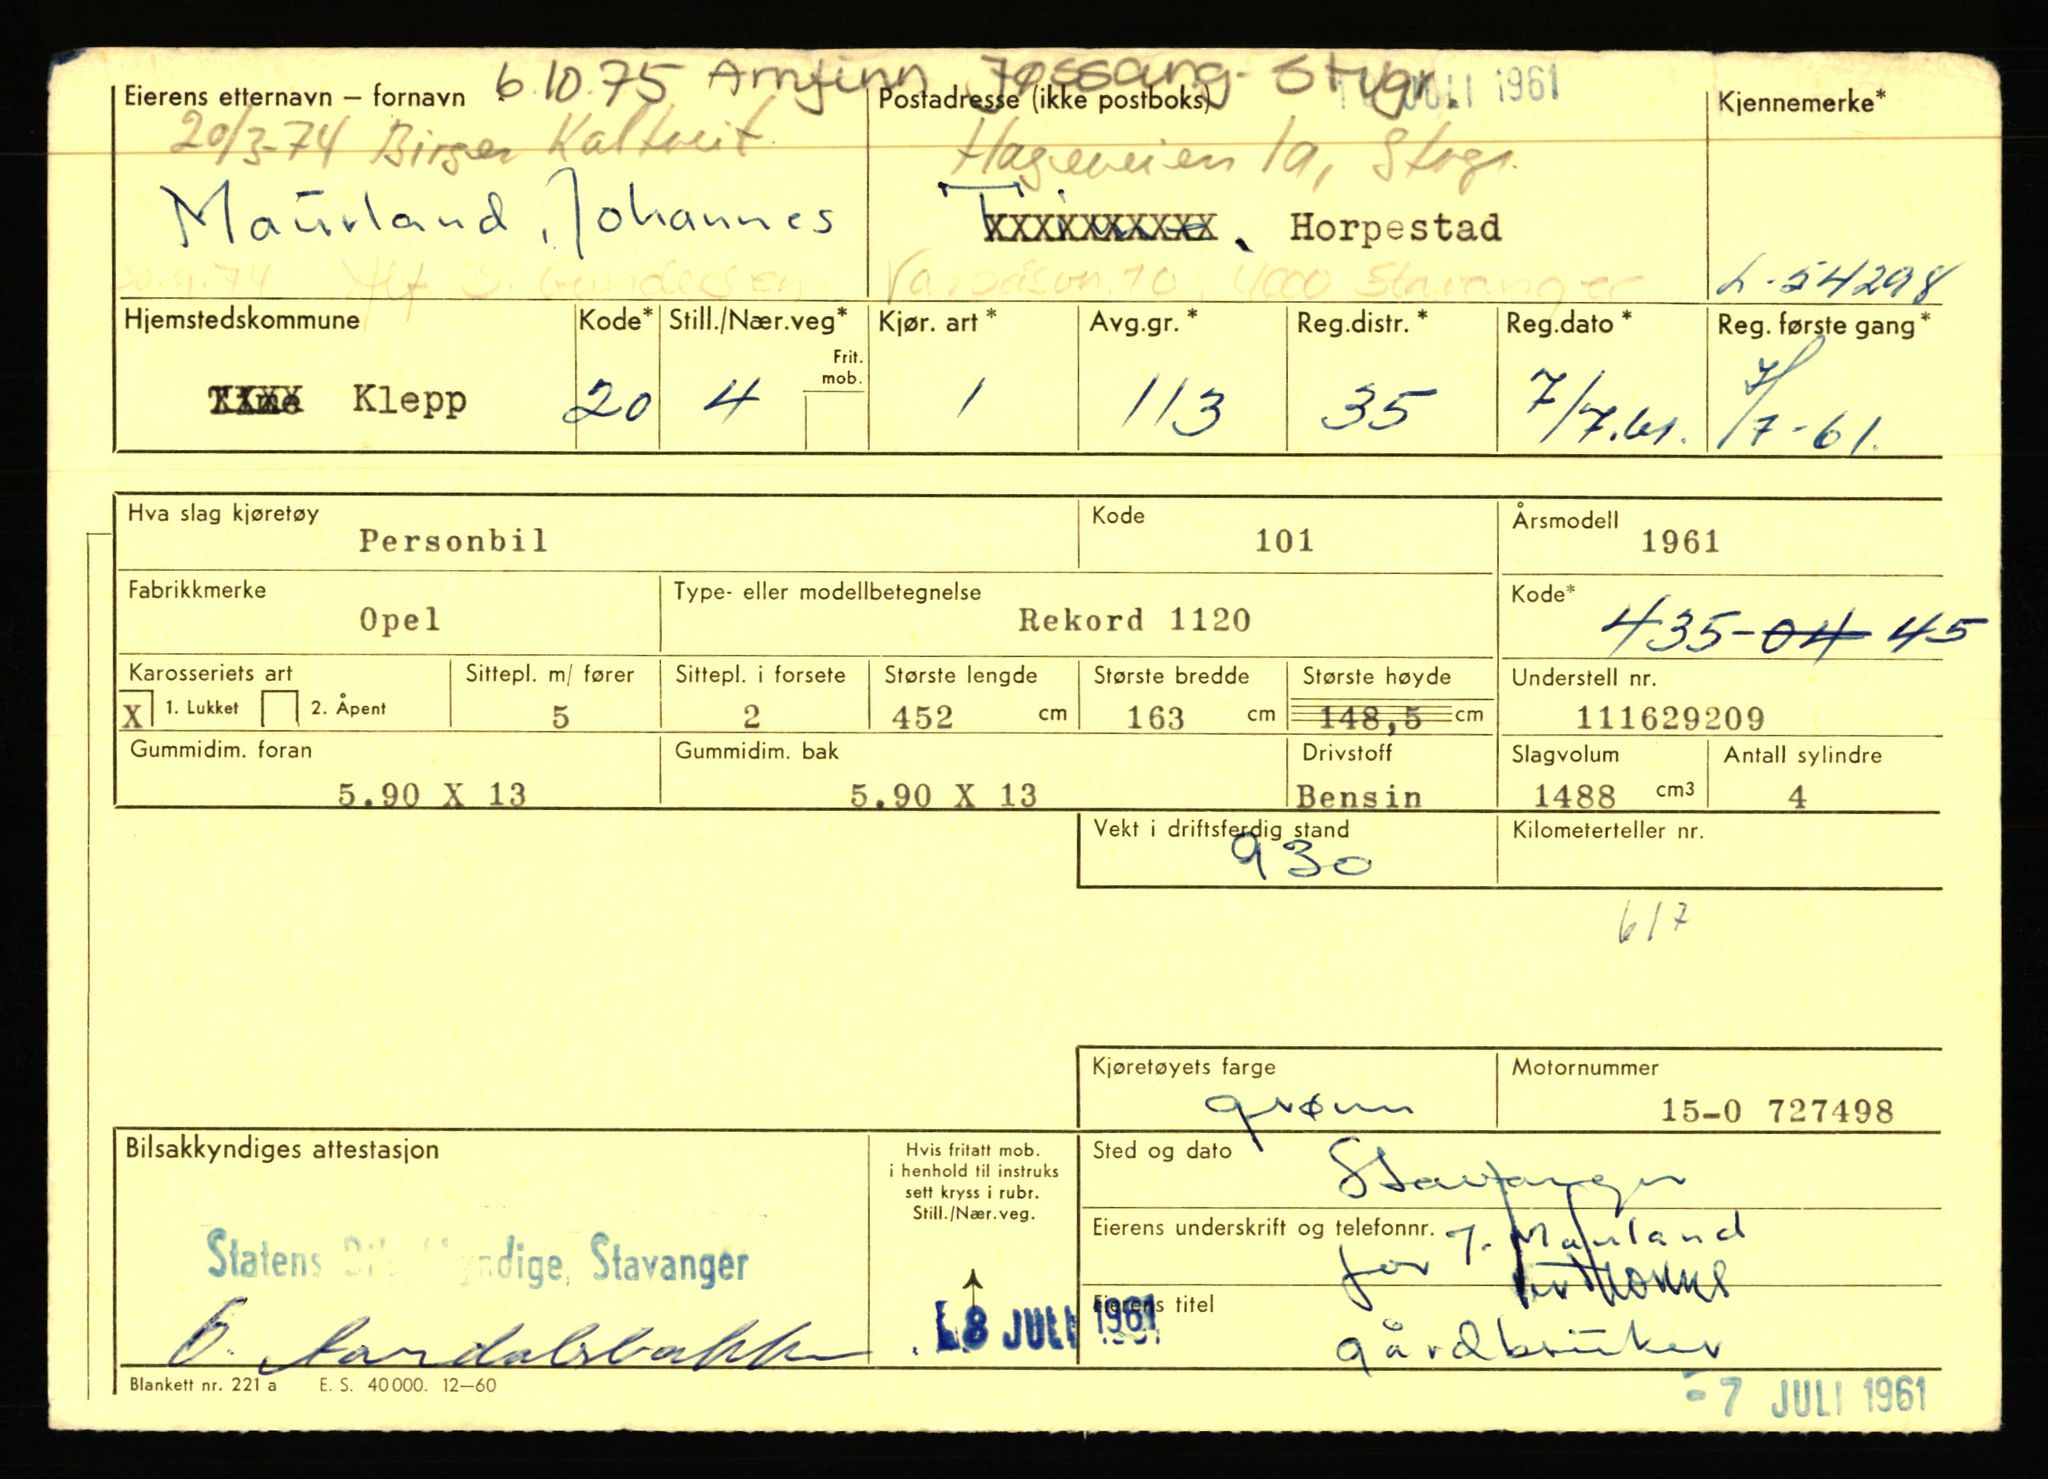 6.10.75 Arnfinn Jøssang - Stvgr. JULI 1961
Eierens etternavn – fornavn Postadresse (ikke postboks) Kjennemerke*
20/3-74 Birger Kaltveit. Hageveien 1a, Stvgr.
Maurland, Johannes Time. Horpestad
9.74 Alf B. Gundersen 10, 4000 Stavanger L-54298
Hjemstedskommune Kode* Still./Nær.veg* Kjør. art* Avg.gr.* Reg.distr.* Reg.dato* Reg. første gang*
Frit. mob.
Time Klepp 20 4 1 113 35 7/7.61. 7/7-61.
Hva slag kjøretøy Kode Årsmodell
Personbil 101 1961
Fabrikkmerke Type- eller modellbetegnelse Kode*
Opel Rekord 1120 435-04 45
Karosseriets art Sittepl. m/ fører Sittepl. i forsete Største lengde Største bredde Største høyde Understell nr.
X 1. Lukket 2. Åpent 5 2 452 cm 163 cm 148,5 cm 111629209
Gummidim. foran Gummidim. bak Drivstoff Slagvolum Antall sylindre
5.90 X 13 5.90 X 13 Bensin 1488 cm3 4
Vekt i driftsferdig stand Kilometerteller nr.
930
6/7
Kjøretøyets farge Motornummer
grønn 15-0 727498
Bilsakkyndiges attestasjon Hvis fritatt mob. i henhold til instruks sett kryss i rubr. Still./Nær.veg. Sted og dato
Stavanger
Eierens underskrift og telefonnr.
for J. Maurland
Statens Bilsakkyndige, Stavanger
Eierens titel
L8 JULI 1961
gårdbruker
Blankett nr. 221 a E. S. 40 000. 12—60
-7 JULI 1961